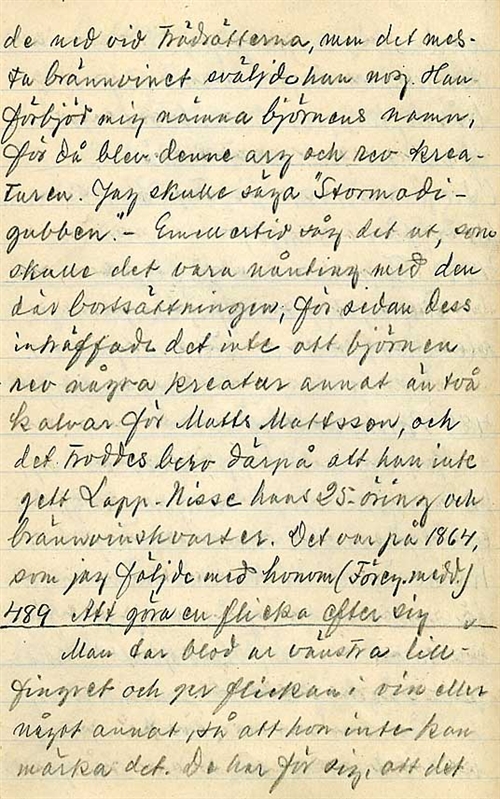 de ned vid trädrötterna, men det mes-
ta brännvinet sväljde han nog. Han
förbjöd mig nämna björnens namn,
för då blev denne arg och rev krea-
turen. Jag skulle säga "Stormodi-
gubben". - Emellertid såg det ut, som
skulle det vara nånting med den
där bortsättningen, för sedan dess
inträffade det inte att björnen
rev några kreatur annat än två
kalvar för Matts Mattsson, och
det troddes bero därpå att han inte
gett Lapp-Nisse hans 25-öring och
brännvinskvarter. Det var på 1864,
som jag följde med honom (Föreg. medd.)
489 Att göra en flicka efter sig
Man tar blod ur vänstra lill-
fingret och ger flickan i vin eller
något annat, så att hon inte kan
märka det. De har för sig, att det